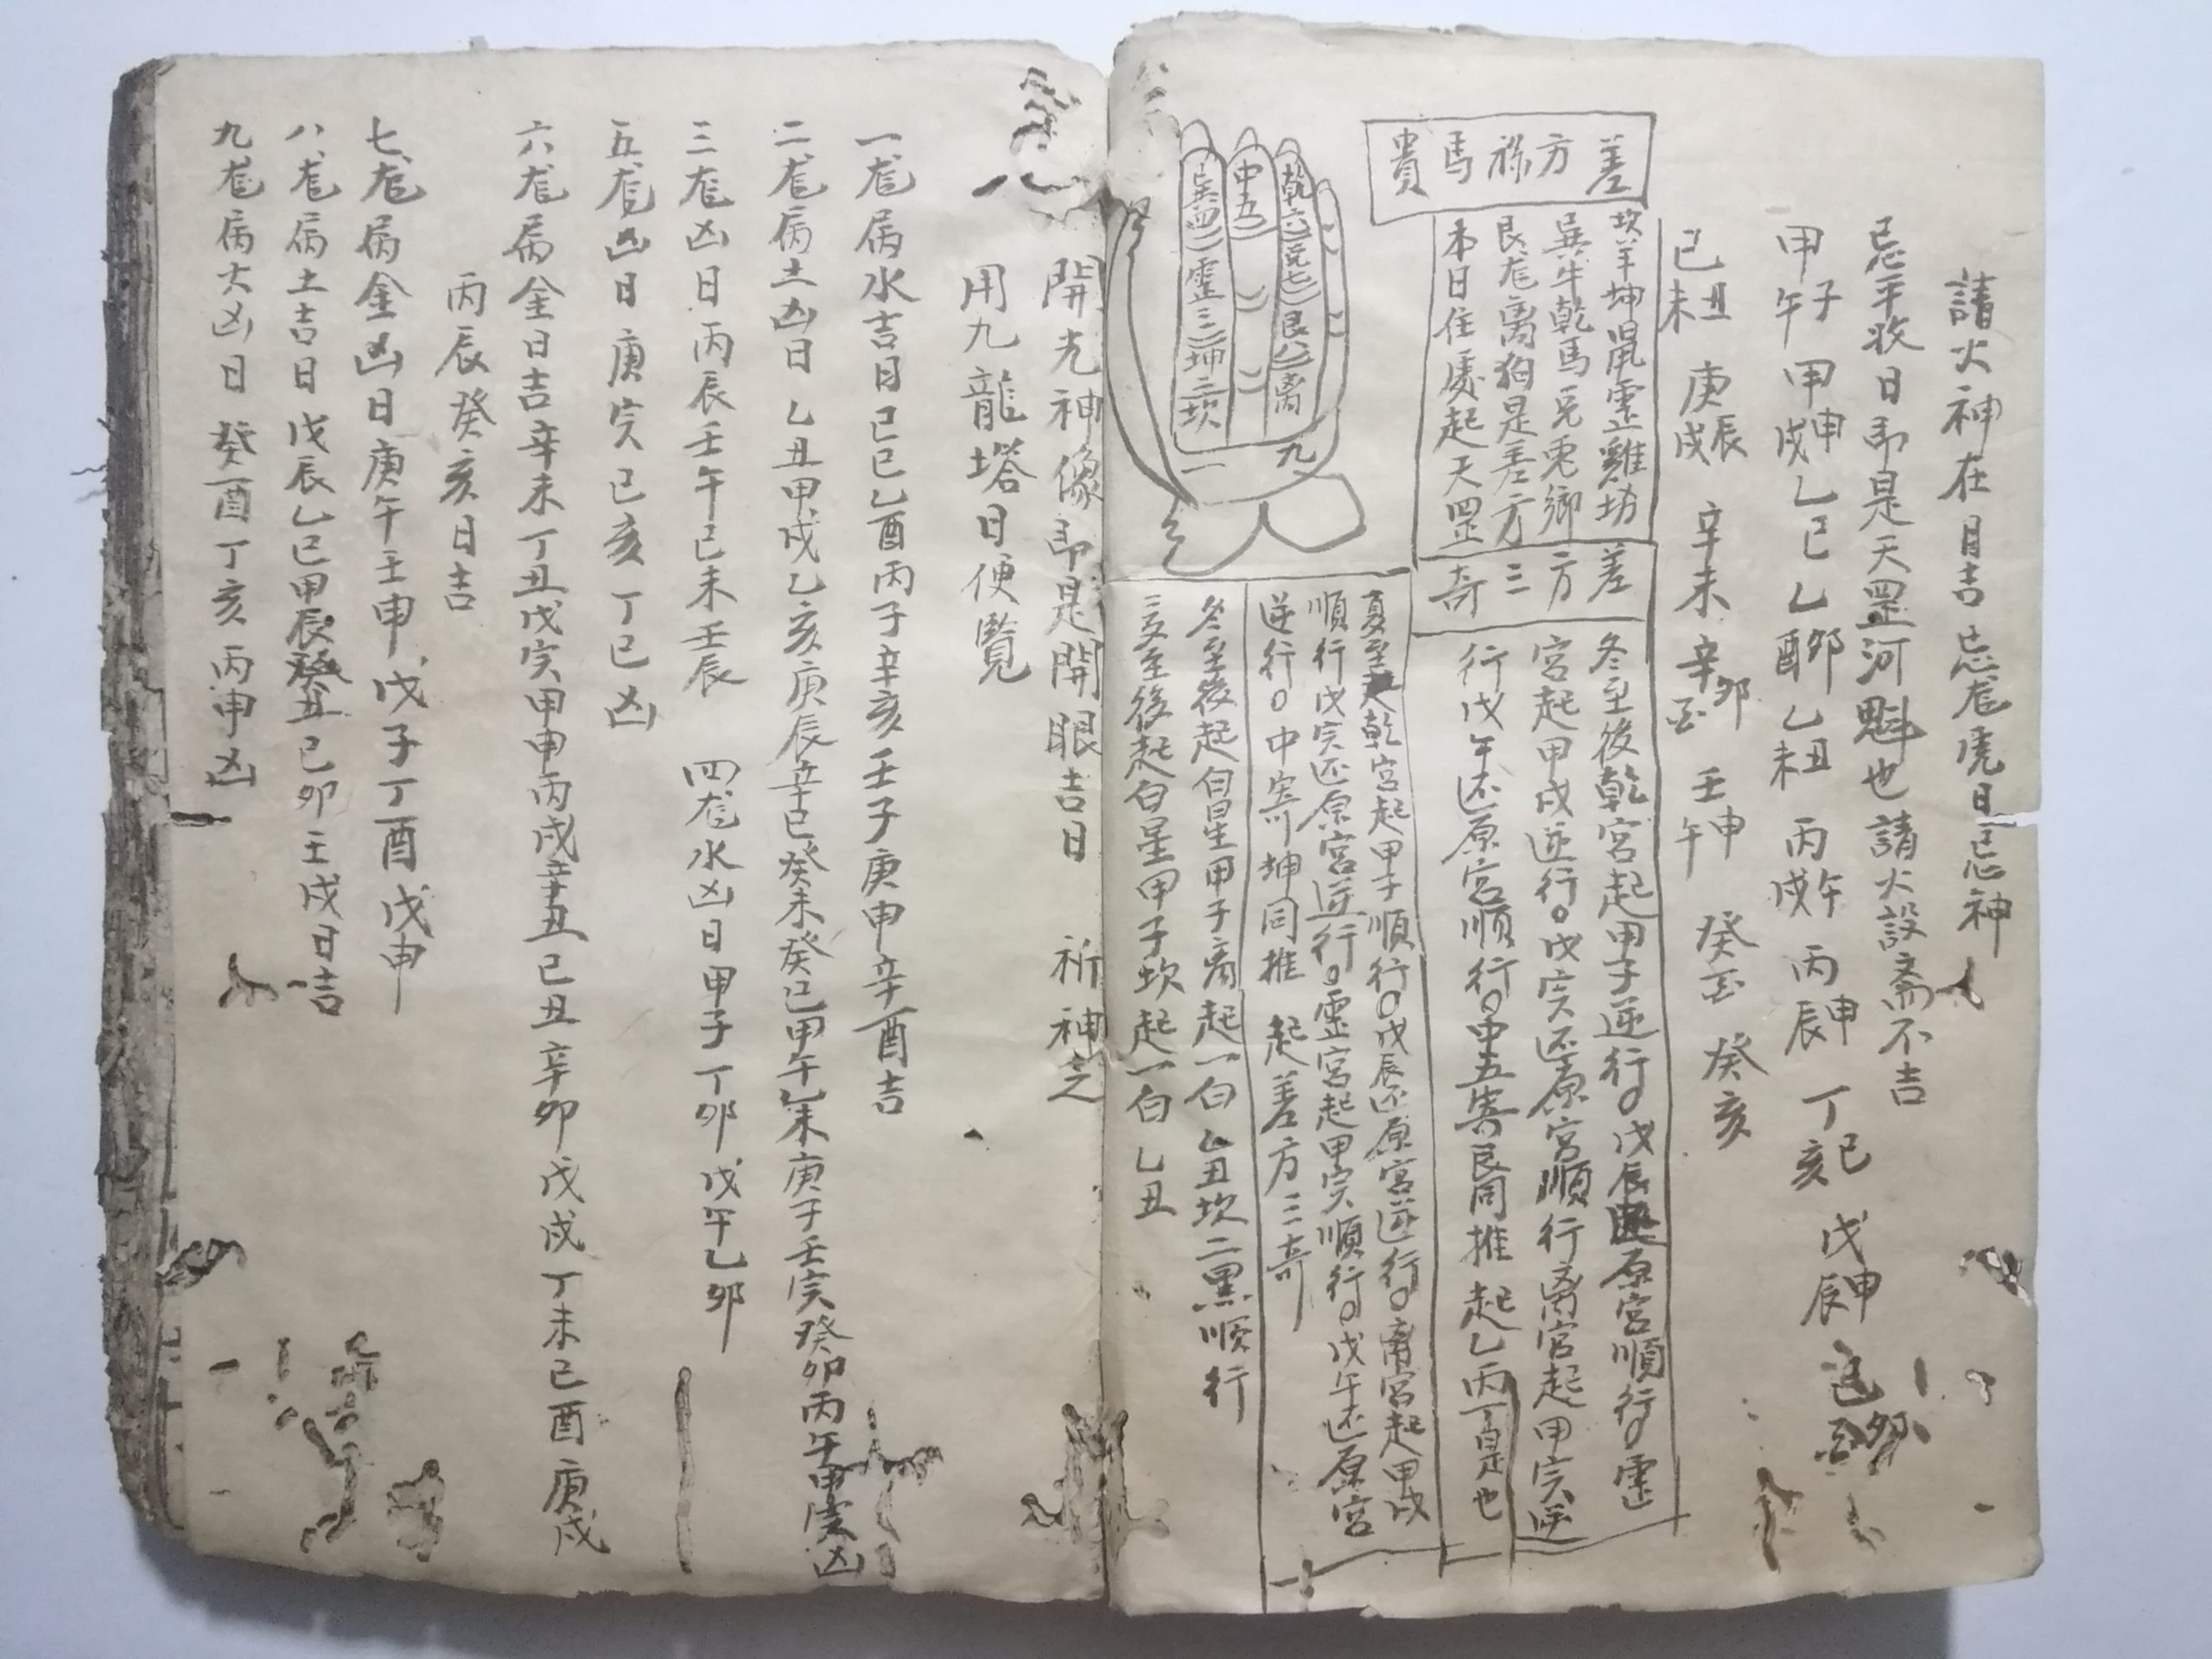 請火神在日吉忌尨虎日忌神
忌平收日即是天罡河魁也請火設斋不吉
甲子午 甲申戌 乙巳 乙卯酉 乙丑未 丙午戌 丙申辰 丁巳亥 戊申辰
己丑未 庚辰戌 辛未 辛卯 壬申午 癸 癸亥
差方祿馬貴
坎羊坤鼠震雞坊
巽牛乾馬兌兎鄉
艮尨离狗是差方
本日住處起天罡
差方三奇
冬至後乾宮起甲子逆行。戊辰还原宮順行。震
宮起甲戌逆行。戊寅还原宮順行离宮起甲寅逆
行戊午还原宮順行。中五寄艮同推 起乙丙丁是也
夏至起乾宮起甲子順行。戊辰还原宮逆行。离宮起甲戌
順行戊寅还原宮逆行。震宮起甲寅順行。戊午还原宮
逆行。中寄坤同推 起差方三奇
冬至後起白星甲子离起一白乙丑坎二黑順行
夏至後起白星甲子坎起一白乙丑
乾六 兌七 艮八 离九
中五
巽四 震三 坤二 坎一
開光神像即是開眼吉日 祈神之
用九龍塔日便覽
一尨病水吉日己巳乙酉丙子辛亥壬子庚申辛酉吉
二尨病土凶日乙丑甲戌乙亥庚辰辛巳癸未癸巳甲午乙未庚子壬寅癸卯丙午甲寅凶
三尨凶日丙辰壬午己未壬辰 四尨水凶日甲子丁卯戊午乙卯
五尨凶日庚寅己亥丁巳凶
六尨病金日吉辛未丁丑戊寅甲申丙戌辛丑己丑辛卯戊戌丁未己酉庚戌
丙辰癸亥日吉
七尨病金凶日庚午壬申戊子丁酉戊申
八尨病土吉日戊辰乙巳甲辰癸丑己卯壬戌日吉
九尨病大凶日癸酉丁亥丙申凶